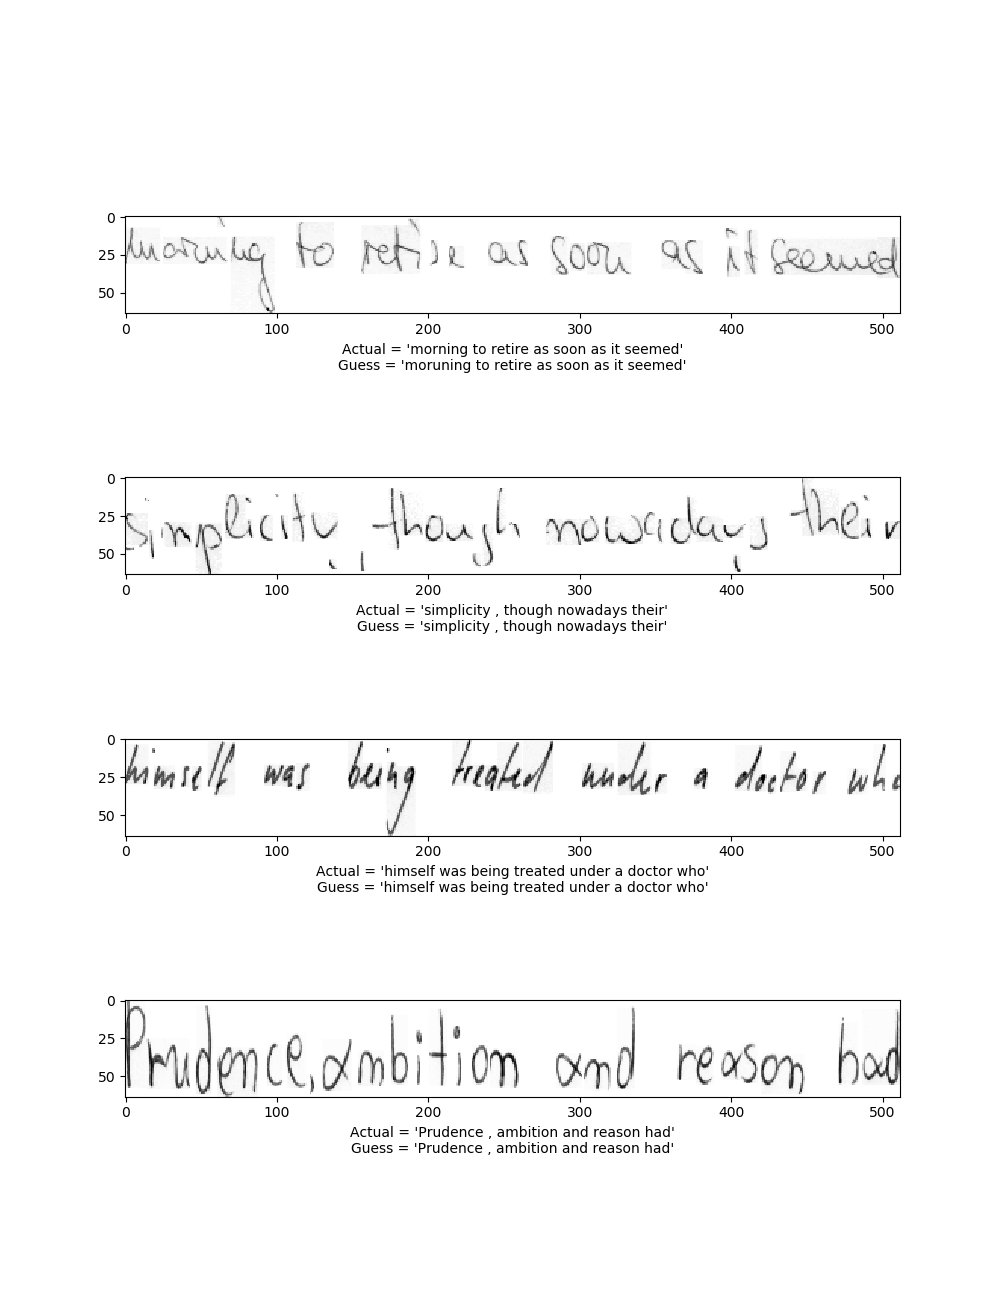 0
25
50
morning to retire as soon as it seemed
0 100 200 300 400 500
Actual = 'morning to retire as soon as it seemed'
Guess = 'moruning to retire as soon as it seemed'
0
25
50
simplicity, though nowadays their
0 100 200 300 400 500
Actual = 'simplicity , though nowadays their'
Guess = 'simplicity , though nowadays their'
0
25
50
himself was being treated under a doctor who
0 100 200 300 400 500
Actual = 'himself was being treated under a doctor who'
Guess = 'himself was being treated under a doctor who'
0
25
50
Prudence, ambition and reason had
0 100 200 300 400 500
Actual = 'Prudence , ambition and reason had'
Guess = 'Prudence , ambition and reason had'